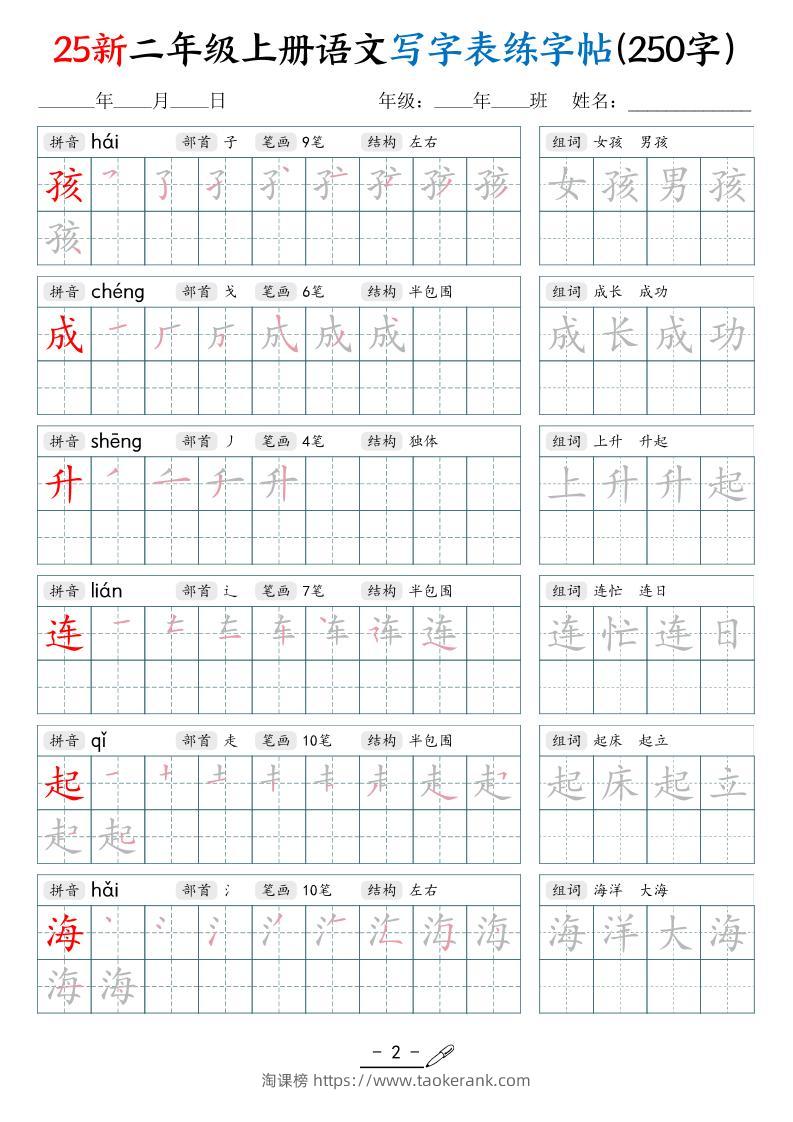 25新二年级上册语文写字表练字帖(250字)
____年___月___日 年级：___年___班 姓名：__________
拼音 hái 部首 子 笔画 9笔 结构 左右 组词 女孩 男孩
孩 女孩男孩
孩
拼音 chéng 部首 戈 笔画 6笔 结构 半包围 组词 成长 成功
成 成长成功
拼音 shēng 部首 丿 笔画 4笔 结构 独体 组词 上升 升起
升 上升升起
拼音 lián 部首 辶 笔画 7笔 结构 半包围 组词 连忙 连日
连 连忙连日
拼音 qǐ 部首 走 笔画 10笔 结构 半包围 组词 起床 起立
起 起床起立
起 起
拼音 hǎi 部首 氵 笔画 10笔 结构 左右 组词 海洋 大海
海 海洋大海
海 海
- 2 -
淘课榜 https://www.taokerank.com